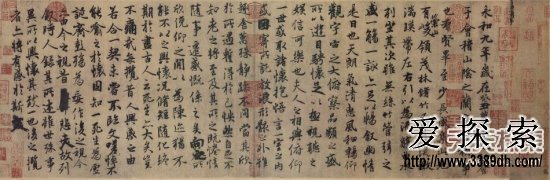 永和九年歲在癸丑
于會稽山陰之蘭亭
也群賢畢至少長咸集
有崇山峻領茂林脩竹
湍暎帶左右引以為流觴
列坐其次雖無絲竹管弦之
盛一觴一詠亦足以暢敘幽情
是日也天朗氣清惠風和暢仰
觀宇宙之大俯察品類之盛
所以遊目騁懷足以極視聽之
娛信可樂也夫人之相與俯仰
一世或取諸懷抱悟言一室之內
或因寄所託放浪形骸之外雖
趣舍萬殊靜躁不同當其欣
於所遇蹔得於己怏然自足不
知老之將至及其所之既惓情
隨事遷感慨係之矣向之所
欣俛仰之閒以為陳迹猶不
能不以之興懷況脩短隨化終
期於盡古人云死生亦大矣豈
不痛哉每攬昔人興感之由
若合一契未嘗不臨文嗟悼不
能喻之於懷固知一死生為虛
誕齊彭殤為妄作後之視今
亦由今之視昔悲夫故列
敘時人錄其所述雖世殊事
異所以興懷其致一也後之攬
者亦將有感於斯文
爱探索
www.3389dh.com